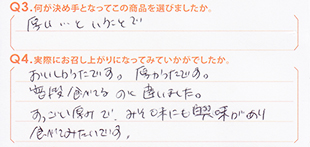 Q3.何が決め手となってこの商品を選びましたか。
厚い…ということで
Q4.実際にお召し上がりになってみていかがでしたか。
おいしかったです。厚かったです。
普段食べてるのと違いました。
すっごい厚みで、みそ味にも興味があり
食べてみたいです。